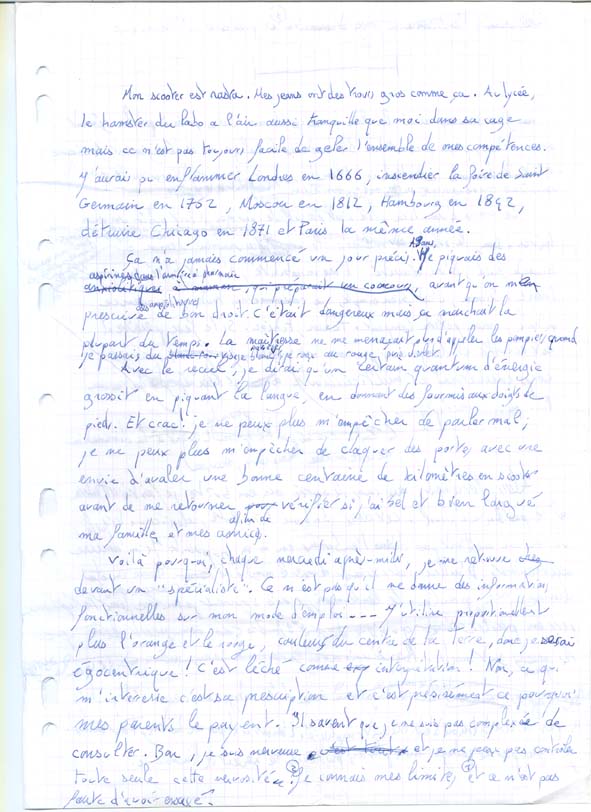 Mon scooter est nadra. Mes jeans ont des trous gros comme ça. Au lycée,
le hamster du labo a l'air aussi tranquille que moi dans sa cage
mais ce n'est pas toujours facile de geler l'ensemble de mes compétences.
J'aurais pu enflammer Londres en 1666, inscendier la foire de Saint
Germain en 1762, Moscou en 1812, Hambourg en 1842,
détruire Chicago en 1871 et Paris la même année.
Ça n'a jamais commencé un jour précis. Je piquais des
aspirines dans l'armoire à pharmacie
avant qu'on m'en
prescrive de bon droit. C'était dangereux mais ça marchait la
plupart du temps. La maîtresse ne me menaçait plus d'appeler les pompiers quand
je passais du rouge au rouge
Avec le recul, je dirai qu'un certain quantum d'énergie
grossit en piquant la langue, en donnant des fourmis aux doigts de
pieds. Et crac! je ne peux plus m'empêcher de parler mal;
je ne peux plus m'empêcher de claquer des portes, avec une
envie d'avaler une bonne centaine de kilomètres en scooter
avant de me retourner afin de vérifier si j'ai bel et bien largué
ma famille et mes amies.
Voilà pourquoi, chaque mercredi après-midi, je me retrouve
devant un "spécialiste". Ce n'est pas qu'il me donne des informations
fonctionnelles sur mon mode d'emploi --- J'utilise proportionnellement
plus l'orange et le rouge, couleurs du centre de la terre, donc je serais
égocentrique! C'est léché comme interprétation! Non, ce qui
m'interesse c'est sa prescription et c'est présisément ce pourquoi
mes parents le payent. Ils savent que je ne suis pas complexée de
consulter. Bon, je suis nerveuse et je ne peux pas contrôler
toute seule cette nervosité. ② Je connais mes limites ① et ce n'est pas
faute d'avoir essayé.